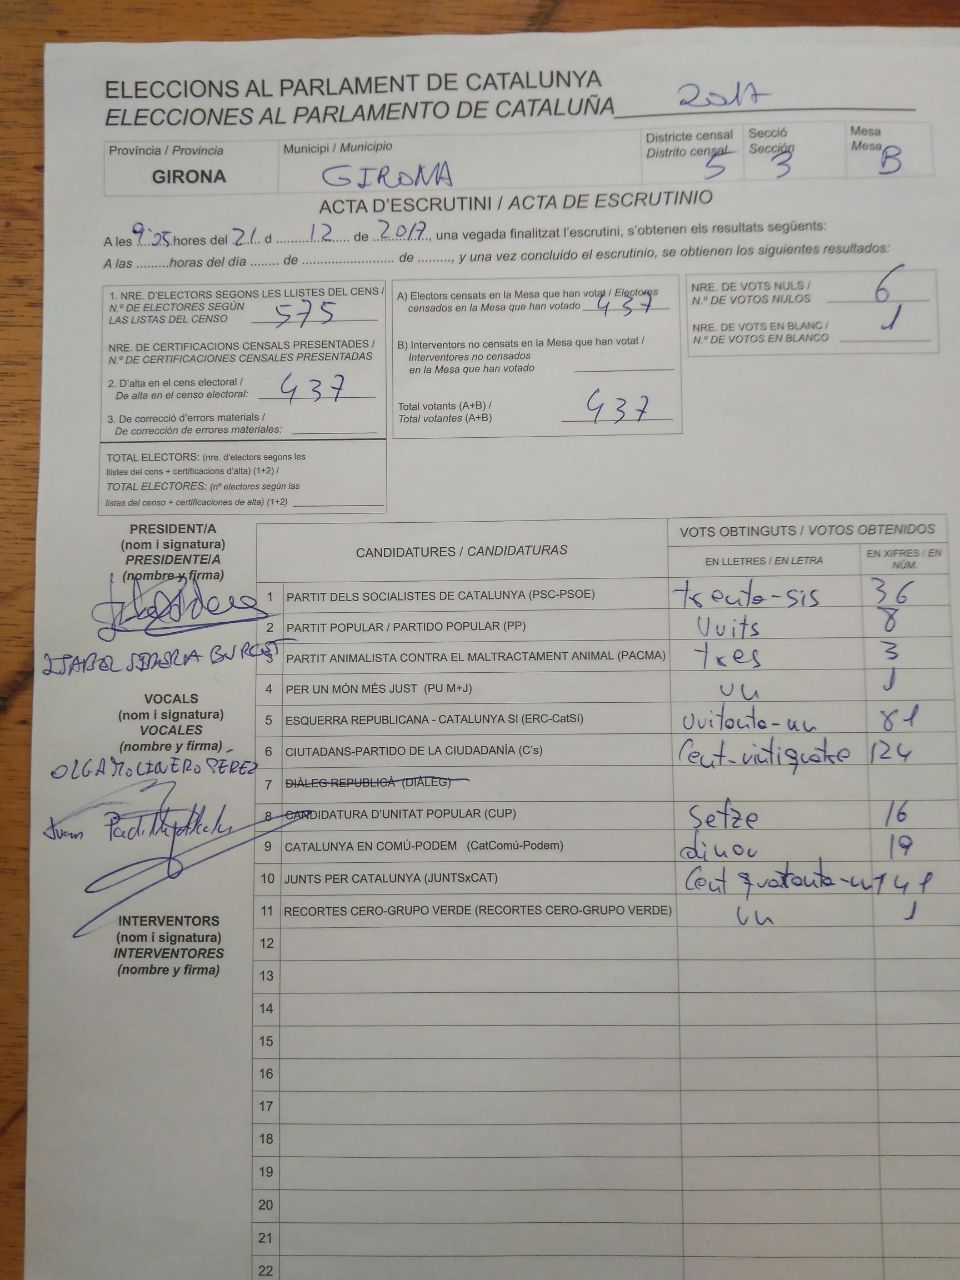 ELECCIONS AL PARLAMENT DE CATALUNYA
ELECCIONES AL PARLAMENTO DE CATALUÑA 2017
Província / Provincia
GIRONA
Municipi / Municipio
GIRONA
Districte censal
Distrito censal 5
Secció
Sección 3
Mesa
Mesa B
ACTA D'ESCRUTINI / ACTA DE ESCRUTINIO
A les 9:25 hores del 21 d 12 de 2017, una vegada finalitzat l'escrutini, s'obtenen els resultats següents:
A las .........horas del día ........ de ........................... de ........., y una vez concluido el escrutinio, se obtienen los siguientes resultados:
1. NRE. D'ELECTORS SEGONS LES LLISTES DEL CENS /
N.º DE ELECTORES SEGÚN
LAS LISTAS DEL CENSO 575
NRE. DE CERTIFICACIONS CENSALS PRESENTADES /
N.º DE CERTIFICACIONES CENSALES PRESENTADAS
2. D'alta en el cens electoral /
De alta en el censo electoral: 437
3. De correcció d'errors materials /
De corrección de errores materiales:
TOTAL ELECTORS: (nre. d'electors segons les
llistes del cens + certificacions d'alta) (1+2) /
TOTAL ELECTORES: (nº electores según las
listas del censo + certificaciones de alta) (1+2)
A) Electors censats en la Mesa que han votat / Electores
censados en la Mesa que han votado 437
B) Interventors no censats en la Mesa que han votat /
Interventores no censados
en la Mesa que han votado
Total votants (A+B) /
Total votantes (A+B) 437
NRE. DE VOTS NULS /
N.º DE VOTOS NULOS 6
NRE. DE VOTS EN BLANC /
N.º DE VOTOS EN BLANCO 1
PRESIDENT/A
(nom i signatura)
PRESIDENTE/A
(nombre y firma)
ISABEL
VOCALS
(nom i signatura)
VOCALES
(nombre y firma)
OLGA MOLINERO PEREZ
Juan
INTERVENTORS
(nom i signatura)
INTERVENTORES
(nombre y firma)
CANDIDATURES / CANDIDATURAS
VOTS OBTINGUTS / VOTOS OBTENIDOS
EN LLETRES / EN LETRA
EN XIFRES / EN NÚM.
1 PARTIT DELS SOCIALISTES DE CATALUNYA (PSC-PSOE) trenta-sis 36
2 PARTIT POPULAR / PARTIDO POPULAR (PP) Vuits 8
3 PARTIT ANIMALISTA CONTRA EL MALTRACTAMENT ANIMAL (PACMA) tres 3
4 PER UN MÓN MÉS JUST (PU M+J) un 1
5 ESQUERRA REPUBLICANA - CATALUNYA SI (ERC-CatSí) Vuitanta-un 81
6 CIUTADANS-PARTIDO DE LA CIUDADANÍA (C's) Cent-vintiquatre 124
7 DIÀLEG REPUBLICÀ (DIÀLEG)
8 CANDIDATURA D'UNITAT POPULAR (CUP) Setze 16
9 CATALUNYA EN COMÚ-PODEM (CatComú-Podem) dinou 19
10 JUNTS PER CATALUNYA (JUNTSxCAT) Cent quatanta-un 141
11 RECORTES CERO-GRUPO VERDE (RECORTES CERO-GRUPO VERDE) un 1
12
13
14
15
16
17
18
19
20
21
22